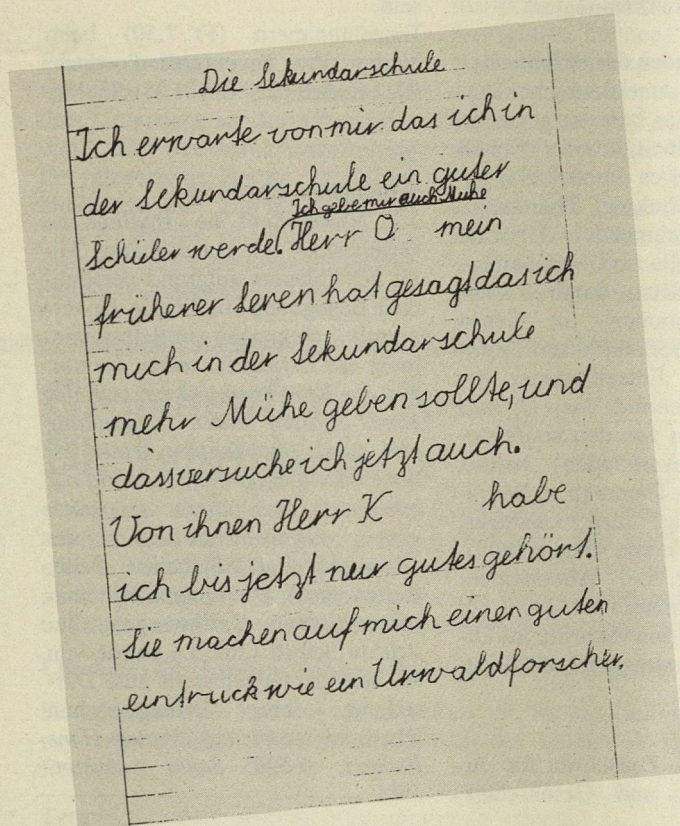 Die Sekundarschule
Ich erwarte von mir das ich in
der Sekundarschule ein guter
Ich gebe mir auch Mühe
Schüler werde. (Herr O mein
früherer Leren hat gesagt das ich
mich in der Sekundarschule
mehr Mühe geben sollte, und
dass versuche ich jetzt auch.
Von ihnen Herr K habe
ich bis jetzt nur gutes gehört.
Sie machen auf mich einen guten
eintruck wie ein Urwaldforscher.